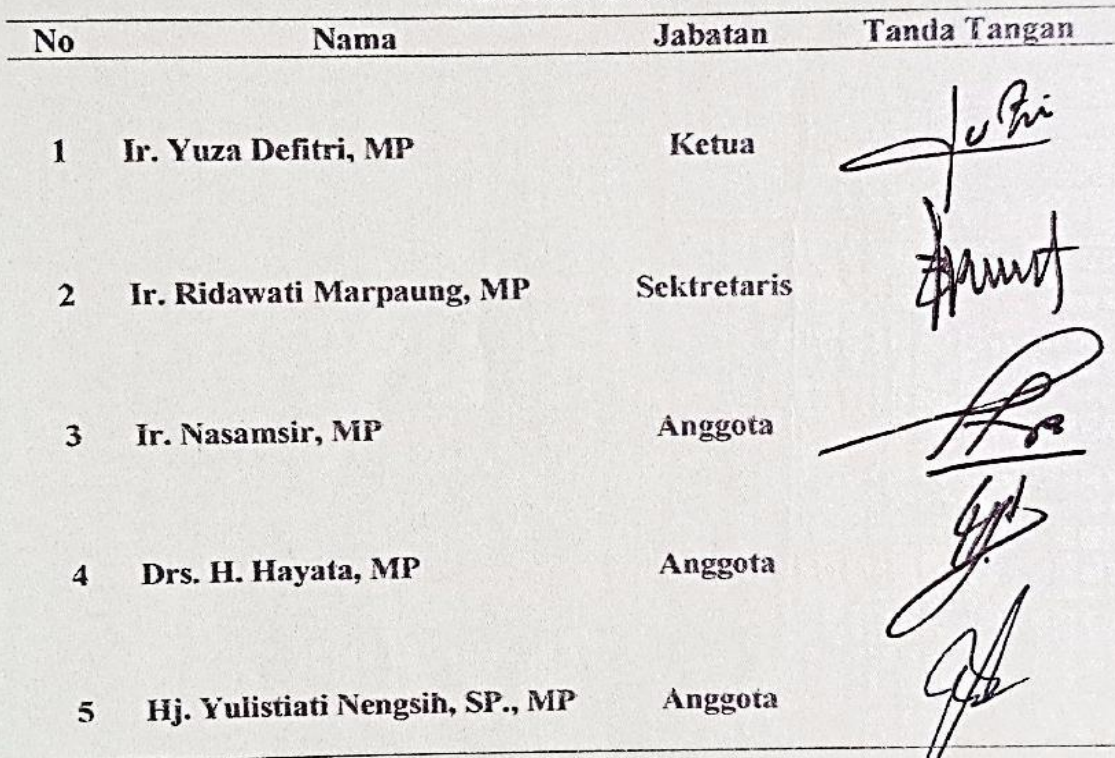 No Nama Jabatan Tanda Tangan
1 Ir. Yuza Defitri, MP Ketua
2 Ir. Ridawati Marpaung, MP Sektretaris
3 Ir. Nasamsir, MP Anggota
4 Drs. H. Hayata, MP Anggota
5 Hj. Yulistiati Nengsih, SP., MP Anggota